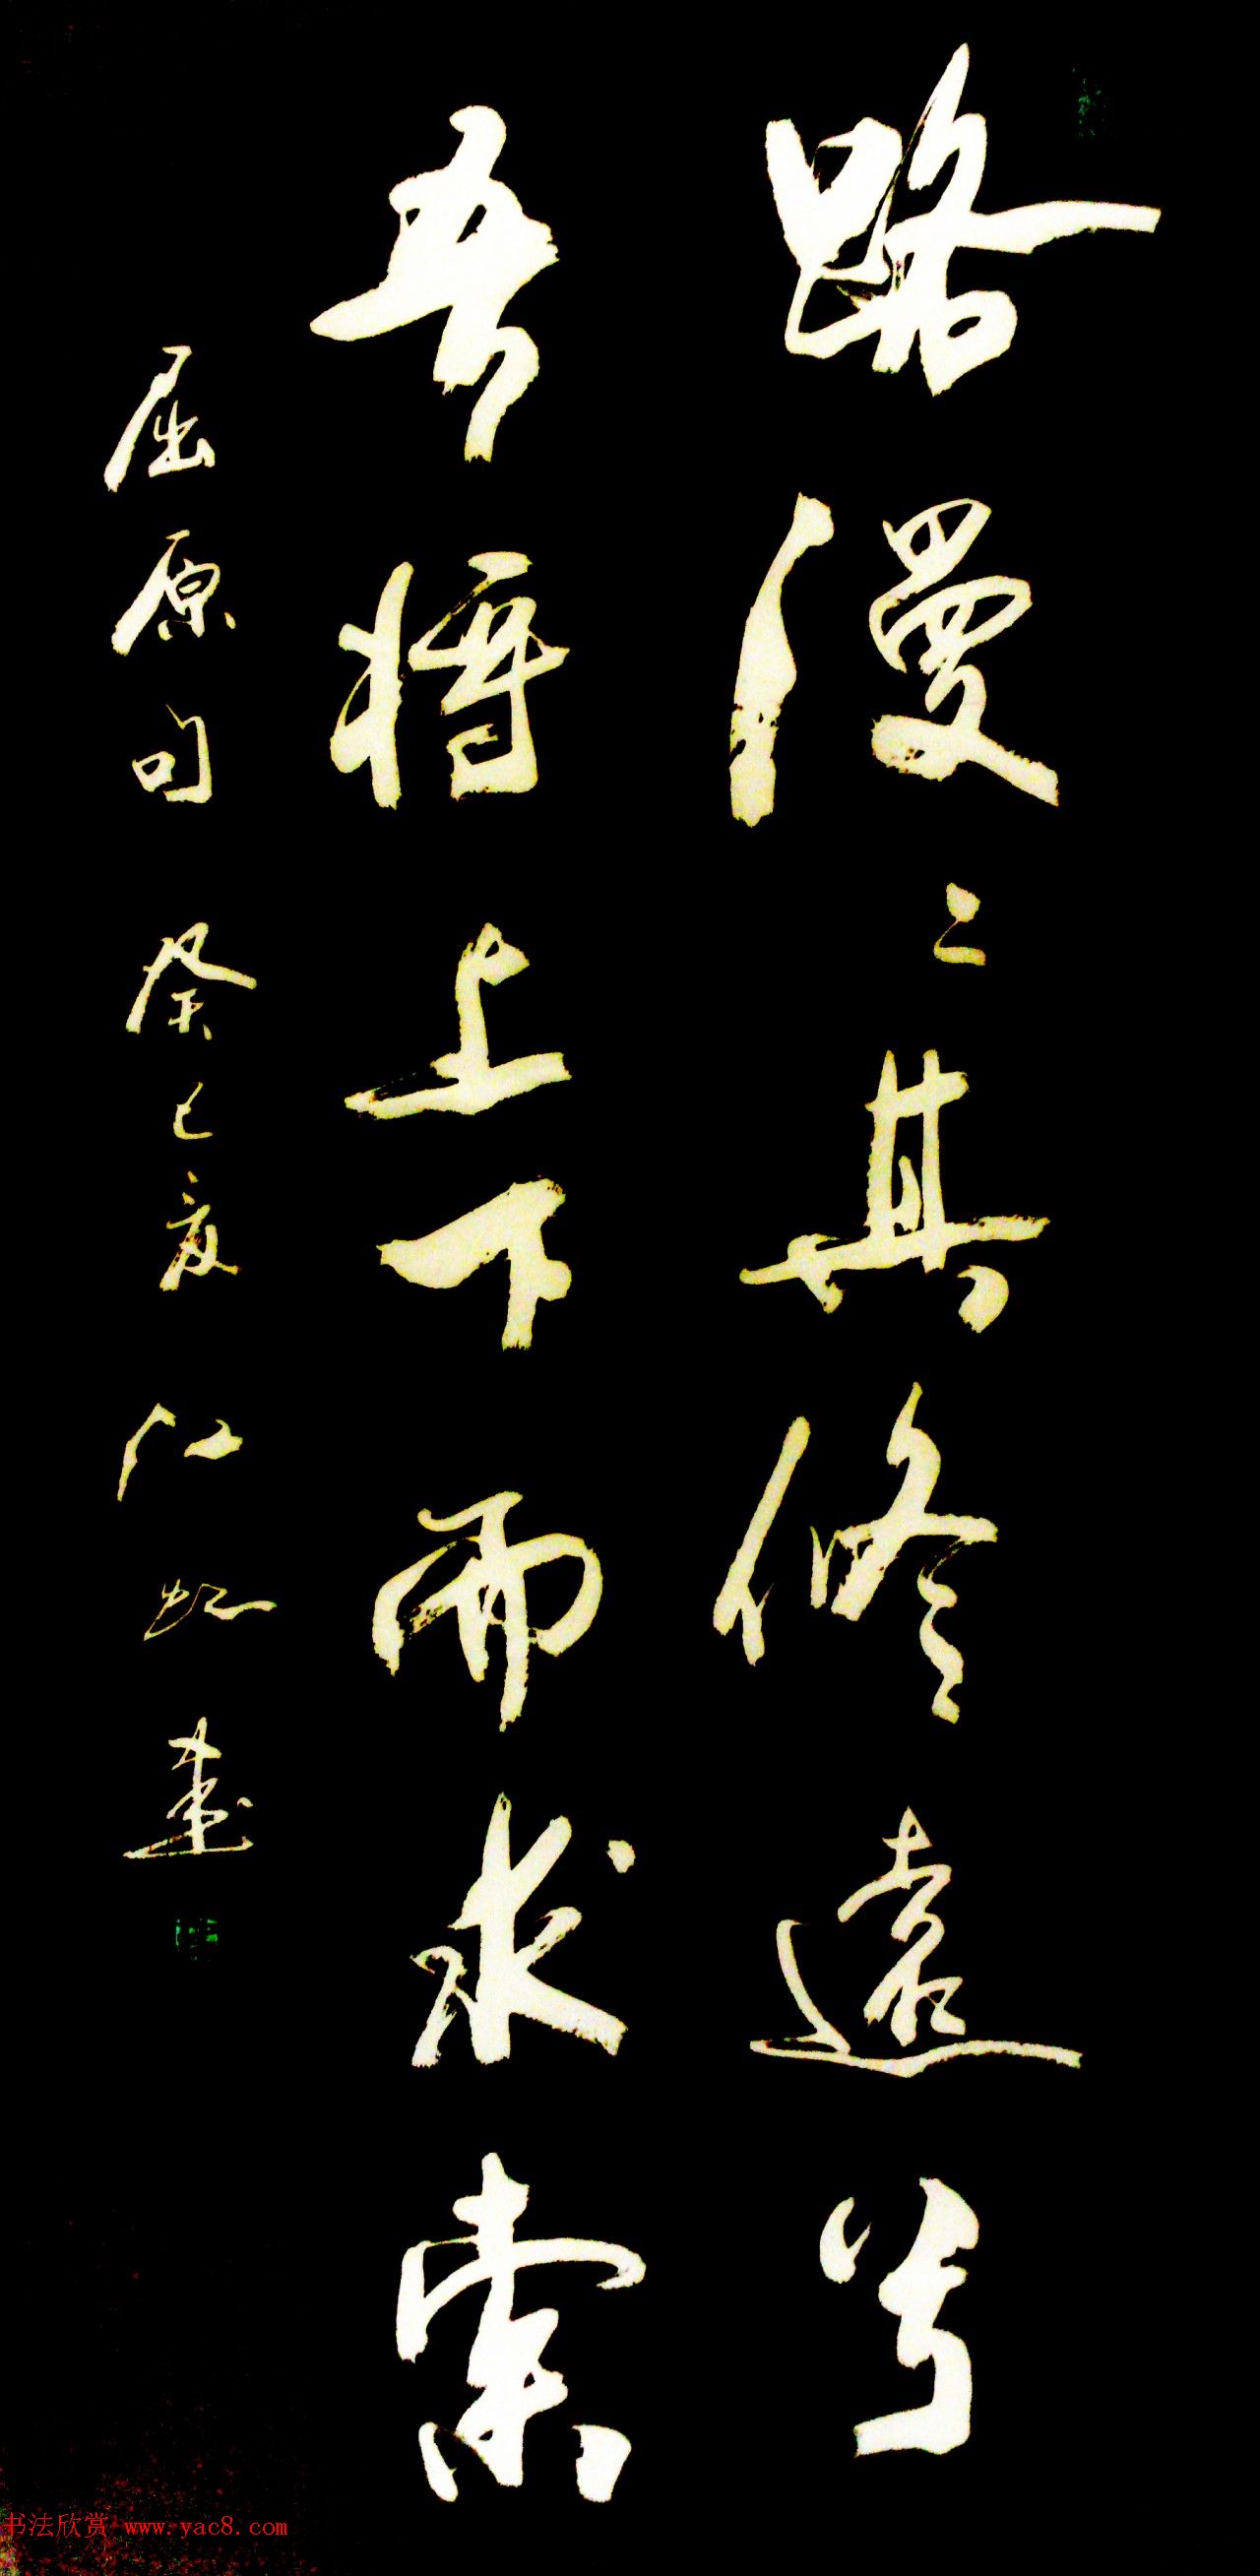 路漫〻其修遠兮
吾將上下而求索
屈原句 癸巳夏
书法欣赏 www.yac8.com